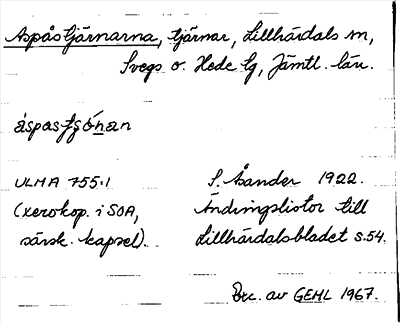 Aspåstjärnarna, tjärnar, Lillhärdals sn,
Svegs o. Hede tg, Jämtl. län.
áspastjó̱nan
ULMA 755:1
(xerokop. i SOA,
särsk. kapsel).
S. Åsander 1922.
Ändringslistor till
Lillhärdalsbladet s.54.
Exc. av GEHL 1967.